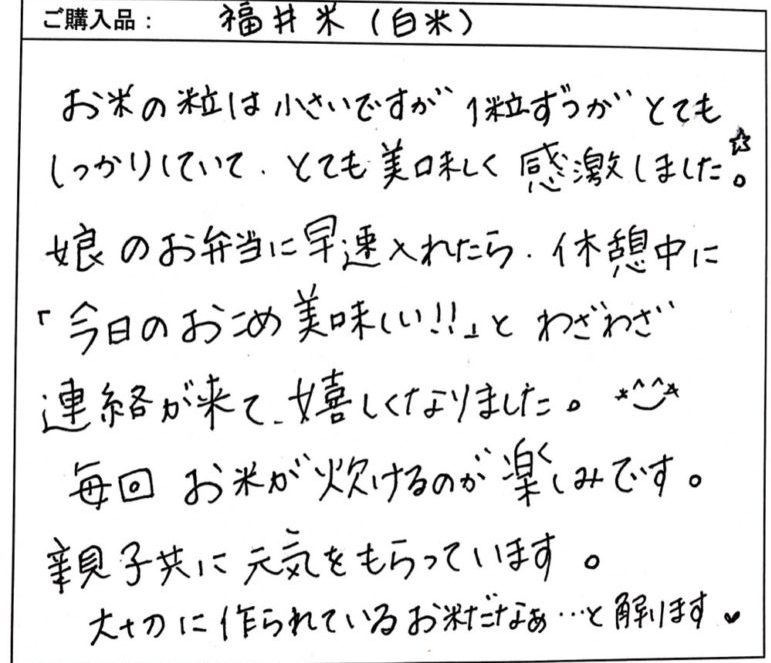 ご購入品： 福井米（白米）
お米の粒は小さいですが 1粒ずつが とても
しっかりしていて、とても美味しく 感激しました☆。
娘のお弁当に早速入れたら、休憩中に
「今日のおこめ美味しい!!」と わざわざ
連絡が来て、嬉しくなりました。 *^‿^*
毎回 お米が炊けるのが 楽しみです。
親子共に 元気をもらっています。
大切に作られているお米だなぁ…と解ります♥